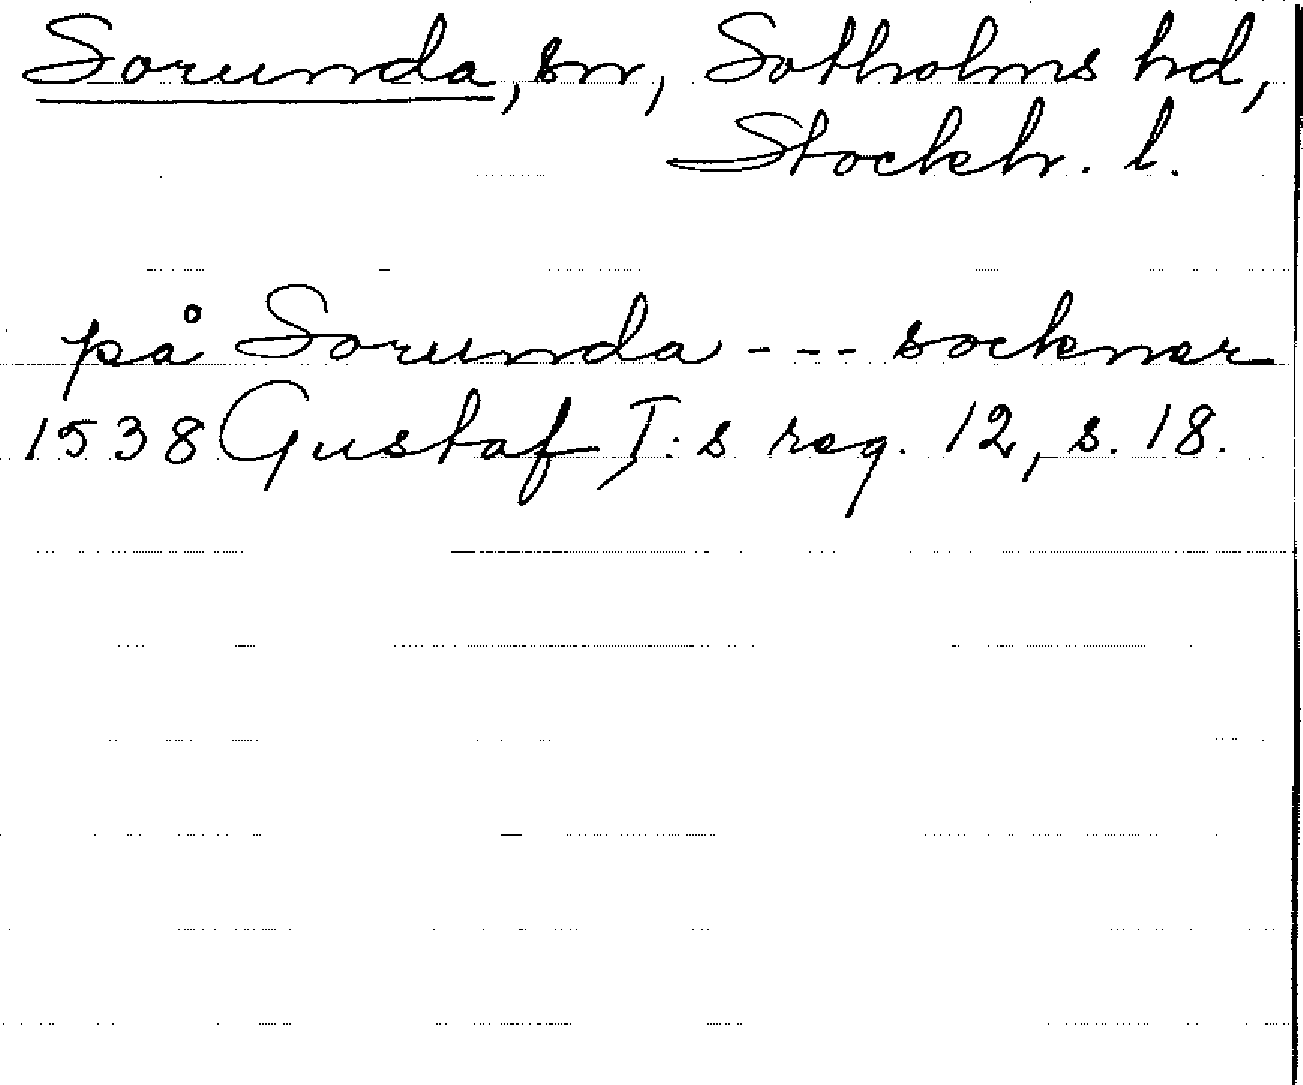 Sorunda, sn, Sotholms hd,
Stockh. l.
på Sorunda --- socknar
1538 Gustaf I:s reg. 12, s. 18.